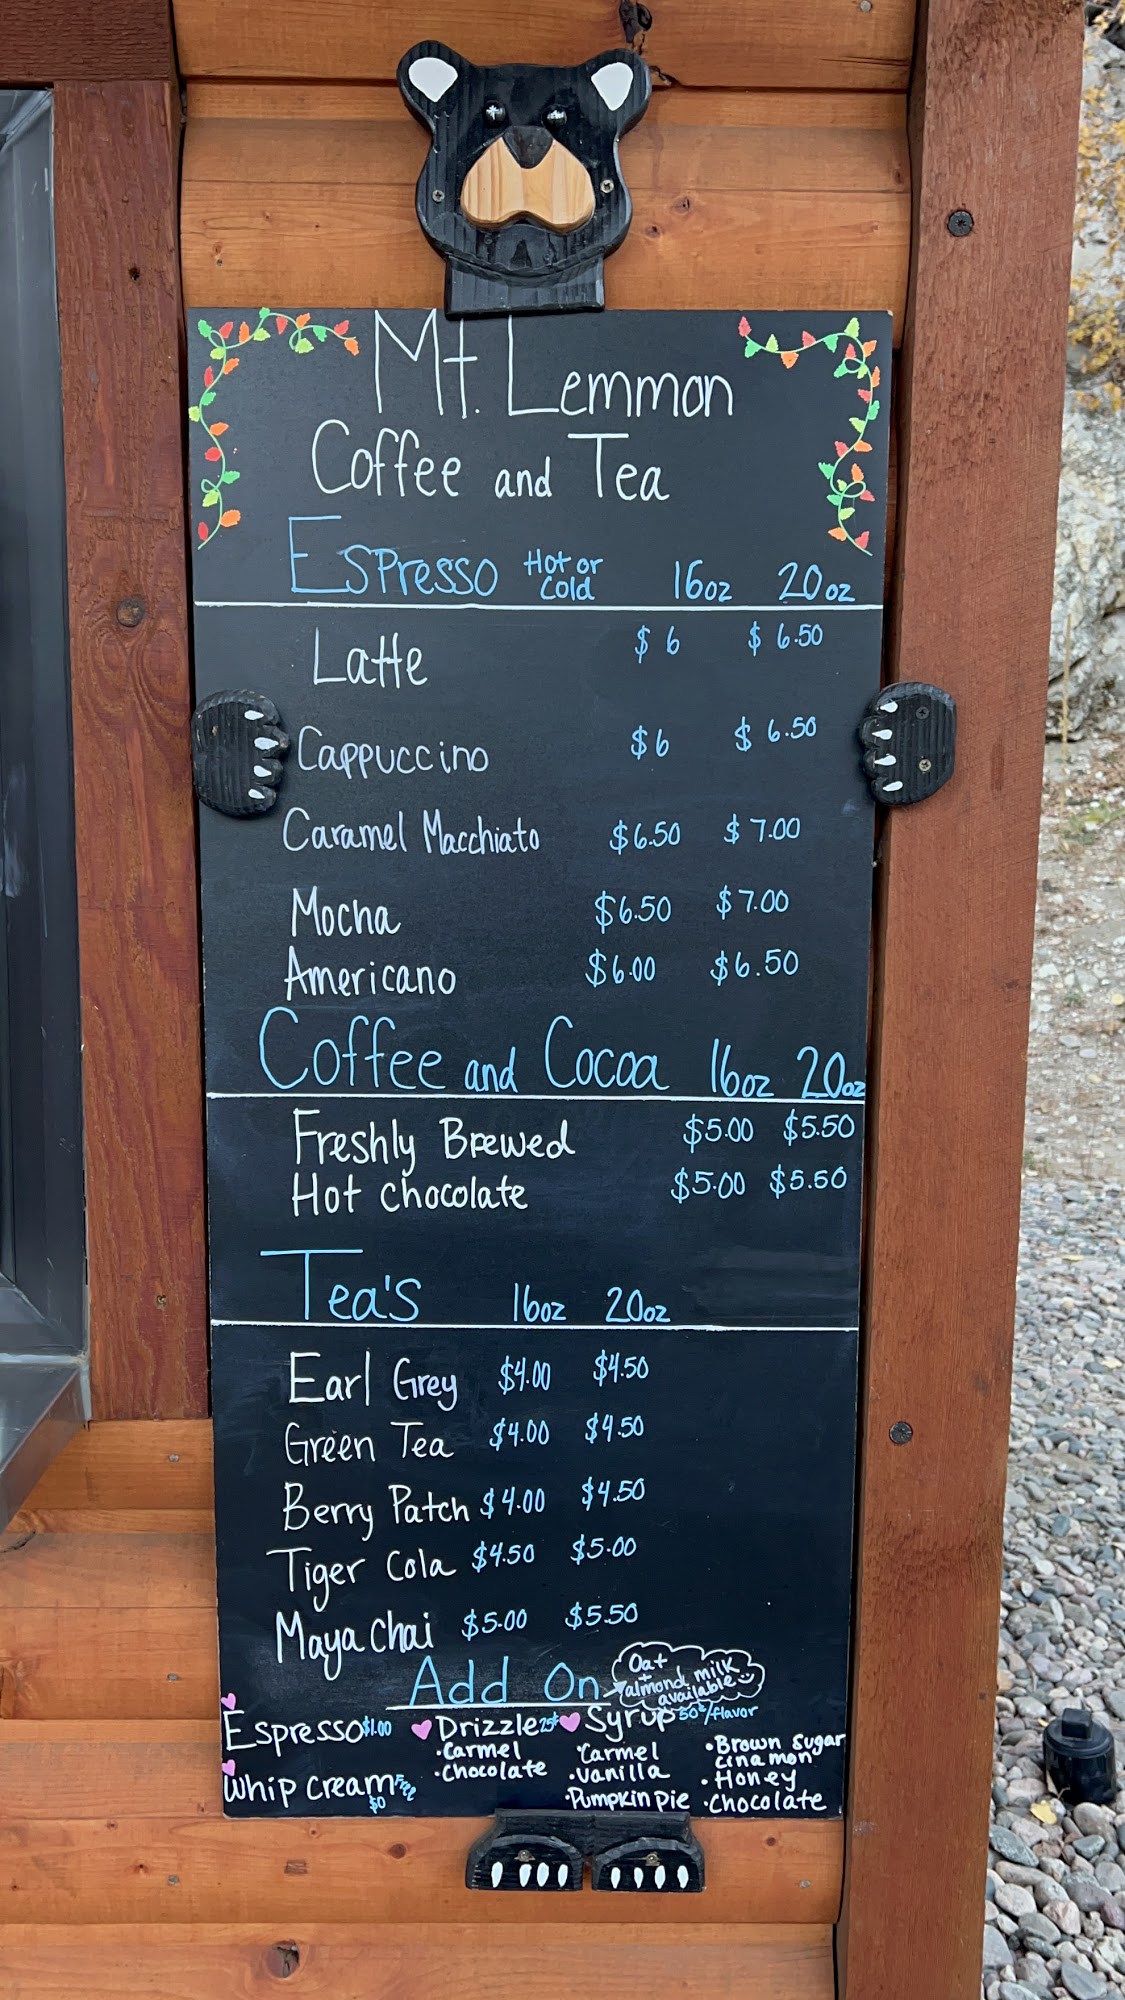 Mt. Lemmon
Coffee and Tea
Espresso Hot or Cold 16oz 20oz
Latte $6 $6.50
Cappuccino $6 $6.50
Caramel Macchiato $6.50 $7.00
Mocha $6.50 $7.00
Americano $6.00 $6.50
Coffee and Cocoa 16oz 20oz
Freshly Brewed $5.00 $5.50
Hot chocolate $5.00 $5.50
Tea's 16oz 20oz
Earl Grey $4.00 $4.50
Green Tea $4.00 $4.50
Berry Patch $4.00 $4.50
Tiger Cola $4.50 $5.00
Maya Chai $5.00 $5.50
Add On
Oat +
almond milk
available
Espresso $1.00
Whip cream Free
$0
Drizzle 25¢
·Carmel
·Chocolate
Syrup 50¢/flavor
·Carmel
·Vanilla
·Pumpkin pie
·Brown sugar
cinamon
·Honey
·Chocolate